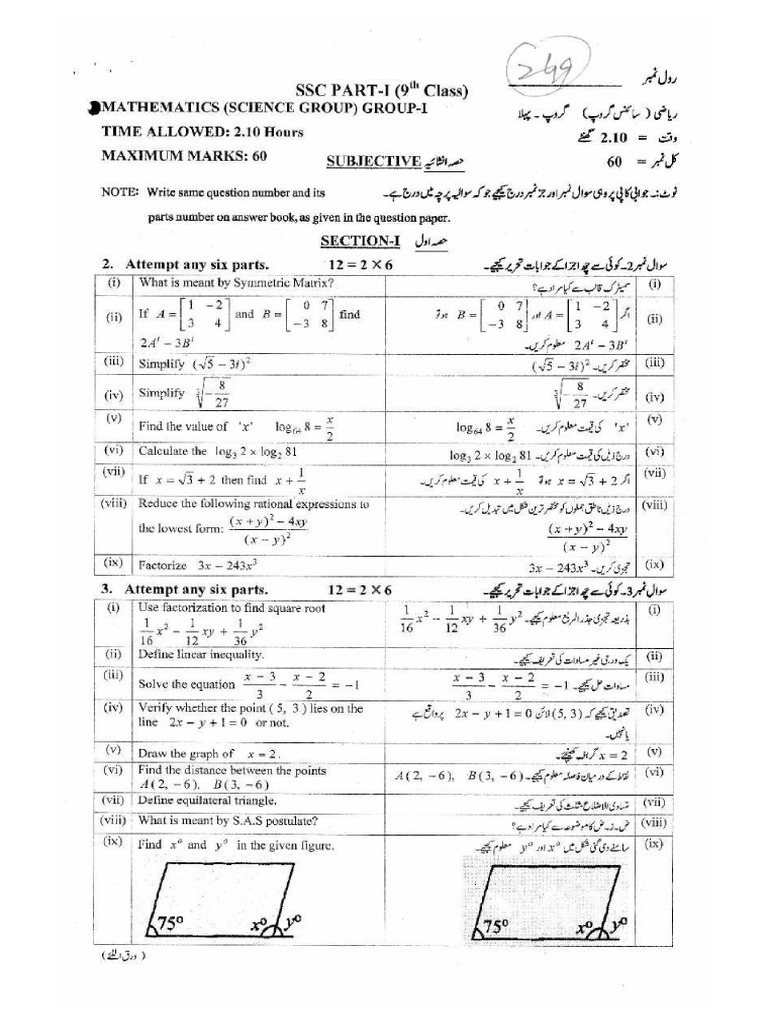 249
رول نمبر
SSC PART-I (9th Class)
MATHEMATICS (SCIENCE GROUP) GROUP-I
ریاضی ( سائنس گروپ) گروپ ۔ پہلا
TIME ALLOWED: 2.10 Hours
وقت = 2.10 گھنٹے
MAXIMUM MARKS: 60
SUBJECTIVE حصہ انشائیہ
کل نمبر = 60
NOTE: Write same question number and its
نوٹ:۔ جوابی کاپی پر وہی سوال نمبر اور جز نمبر درج کیجیے جو کہ سوالیہ پرچہ میں درج ہے۔
parts number on answer book, as given in the question paper.
SECTION-I حصہ اول
2. Attempt any six parts. 12 = 2 × 6
سوال نمبر 2۔ کوئی سے چھ اجزا کے جوابات تحریر کیجیے۔
(i) What is meant by Symmetric Matrix?
سمیٹرک قالب سے کیا مراد ہے؟ (i)
(ii) If A = [1 −2; 3 4] and B = [0 7; −3 8] find
اگر A = [1 −2; 3 4] اور B = [0 7; −3 8] ہو تو (ii)
2Aᵗ − 3Bᵗ
2Aᵗ − 3Bᵗ معلوم کریں۔
(iii) Simplify (√5 − 3i)²
(√5 − 3i)² مختصر کریں۔ (iii)
(iv) Simplify ∛(−8/27)
∛(−8/27) مختصر کریں۔ (iv)
(v) Find the value of 'x' log₆₄ 8 = x/2
log₆₄ 8 = x/2 'x' کی قیمت معلوم کریں۔ (v)
(vi) Calculate the log₃ 2 × log₂ 81
log₃ 2 × log₂ 81 درج ذیل کی قیمت معلوم کریں۔ (vi)
(vii) If x = √3 + 2 then find x + 1/x
اگر x = √3 + 2 ہو تو x + 1/x کی قیمت معلوم کیجیے۔ (vii)
(viii) Reduce the following rational expressions to
درج ذیل ناطق جملوں کو مختصر ترین شکل میں تبدیل کریں۔ (viii)
the lowest form: ((x + y)² − 4xy)/(x − y)²
((x + y)² − 4xy)/(x − y)²
(ix) Factorize 3x − 243x³
3x − 243x³ تجزی کریں۔ (ix)
3. Attempt any six parts. 12 = 2 × 6
سوال نمبر 3۔ کوئی سے چھ اجزا کے جوابات تحریر کیجیے۔
(i) Use factorization to find square root
1/16 x² − 1/12 xy + 1/36 y²
1/16 x² − 1/12 xy + 1/36 y² بذریعہ تجزی جذر المربع معلوم کیجیے۔ (i)
(ii) Define linear inequality.
یک درجی غیر مساوات کی تعریف کیجیے۔ (ii)
(iii) Solve the equation (x − 3)/3 − (x − 2)/2 = −1
(x − 3)/3 − (x − 2)/2 = −1 مساوات حل کیجیے۔ (iii)
(iv) Verify whether the point ( 5, 3 ) lies on the
تصدیق کیجیے کہ (5, 3) لائن 2x − y + 1 = 0 پر واقع ہے (iv)
line 2x − y + 1 = 0 or not.
یا نہیں۔
(v) Draw the graph of x = 2 .
x = 2 گراف کھینچئے۔ (v)
(vi) Find the distance between the points
A ( 2, −6 ), B ( 3, −6 ) نقاط کے درمیان فاصلہ معلوم کیجیے۔ (vi)
A ( 2, −6 ), B ( 3, −6 )
(vii) Define equilateral triangle.
تساوی الاضلاع مثلث کی تعریف کیجیے۔ (vii)
(viii) What is meant by S.A.S postulate?
ض۔ز۔ض کا موضوعہ سے کیا مراد ہے؟ (viii)
(ix) Find xº and yº in the given figure.
سامنے دی گئی شکل میں xº اور yº معلوم کیجیے۔ (ix)
75º xº yº
75º xº yº
( ورق الٹیے )